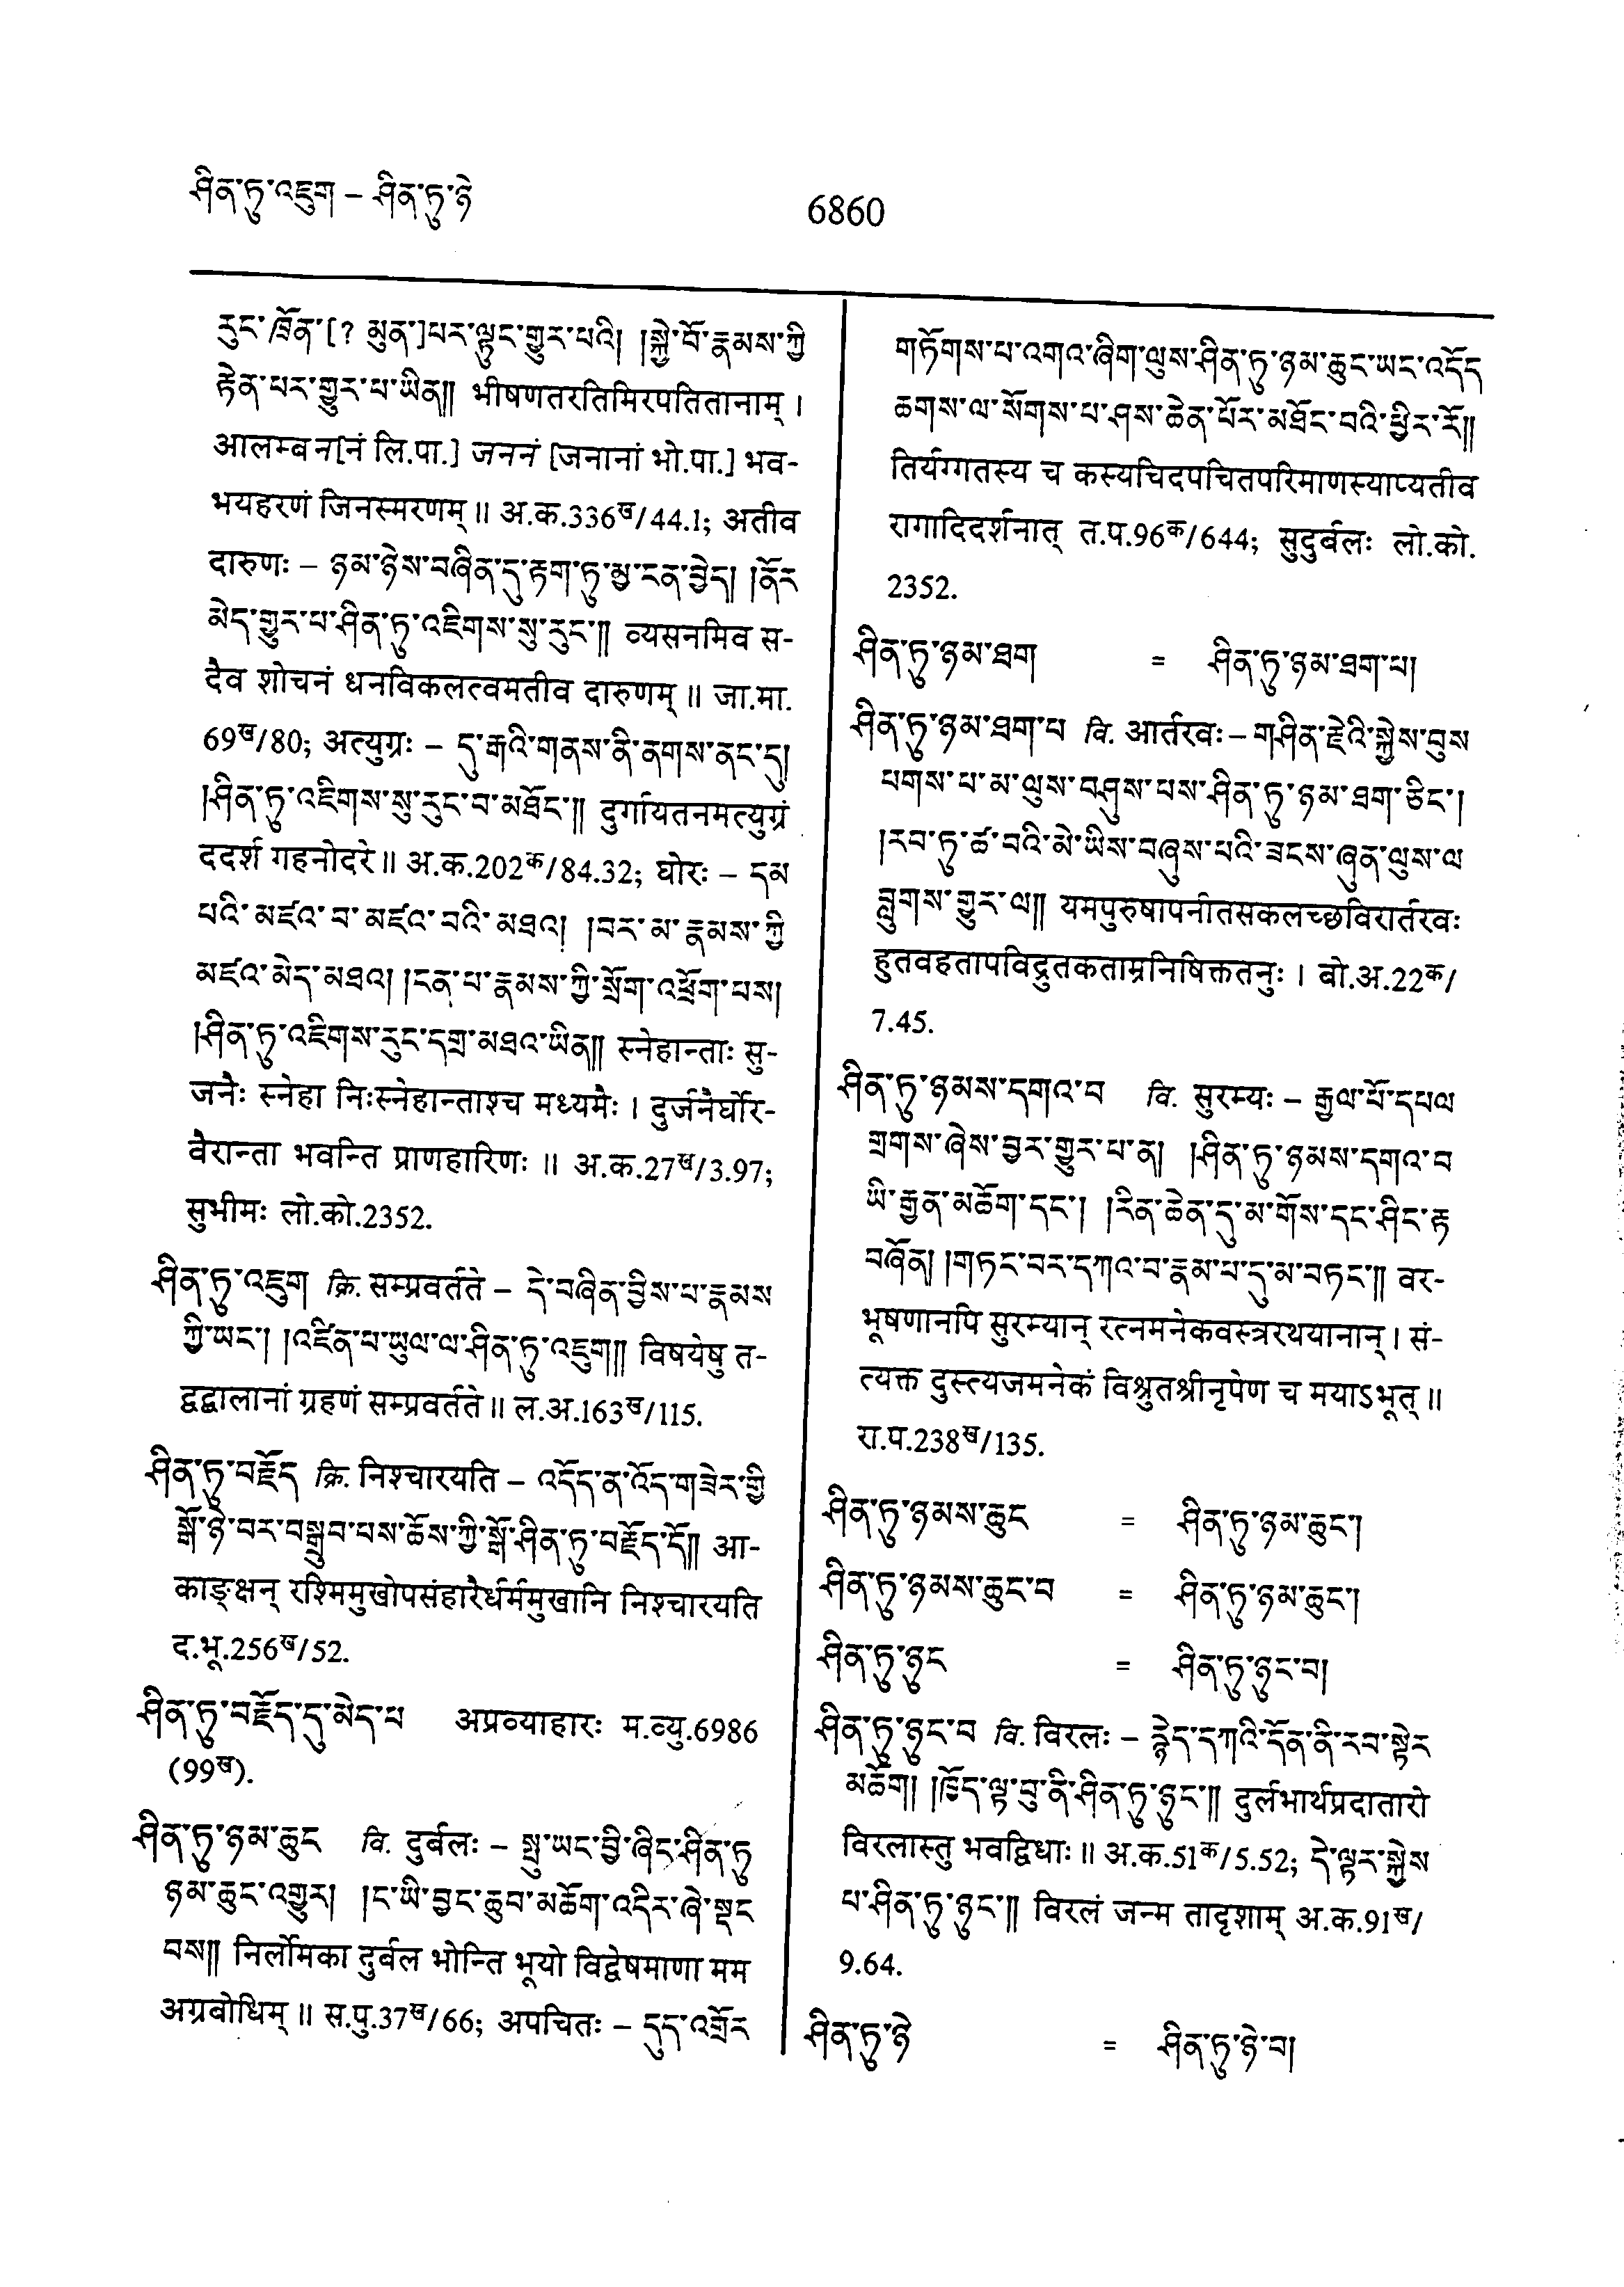 ཤིན་ཏུ་འཇུག – ཤིན་ཏུ་ཉེ
6860
རུང་ཁྲོན་[? མུན་]པར་ལྟུང་གྱུར་པའི། །སྐྱེ་བོ་རྣམས་ཀྱི
རྟེན་པར་གྱུར་པ་ཡིན།། भीषणतरतिमिरपतितानाम् ।
आलम्बन[नं लि.पा.] जननं [जनानां भो.पा.] भव-
भयहरणं जिनस्मरणम् ॥ अ.क.336ख/44.1; अतीव
दारुणः – ཉམ་ཉེས་བཞིན་དུ་རྟག་ཏུ་མྱ་ངན་བྱེད། །ནོར
མེད་གྱུར་པ་ཤིན་ཏུ་འཇིགས་སུ་རུང་།། व्यसनमिव स-
दैव शोचनं धनविकलत्वमतीव दारुणम् ॥ जा.मा.
69ख/80; अत्युग्रः – དུ་རྒའི་གནས་ནི་ནགས་ནང་དུ།
།ཤིན་ཏུ་འཇིགས་སུ་རུང་བ་མཐོང་།། दुर्गायतनमत्युग्रं
ददर्श गहनोदरे ॥ अ.क.202क/84.32; घोरः – དམ
པའི་མཛའ་བ་མཛའ་བའི་མཐའ། །བར་མ་རྣམས་ཀྱི
མཛའ་མེད་མཐའ། །ངན་པ་རྣམས་ཀྱི་སྲོག་འཕྲོག་པས།
།ཤིན་ཏུ་འཇིགས་རུང་དགྲ་མཐའ་ཡིན།། स्नेहान्ताः सु-
जनैः स्नेहा निःस्नेहान्ताश्च मध्यमैः । दुर्जनैर्घोर-
वैरान्ता भवन्ति प्राणहारिणः ॥ अ.क.27ख/3.97;
सुभीमः लो.को.2352.
ཤིན་ཏུ་འཇུག क्रि. सम्प्रवर्तते – དེ་བཞིན་བྱིས་པ་རྣམས
ཀྱི་ཡང་། །འཛིན་པ་ཡུལ་ལ་ཤིན་ཏུ་འཇུག།། विषयेषु त-
द्वद्बालानां ग्रहणं सम्प्रवर्तते ॥ ल.अ.163ख/115.
ཤིན་ཏུ་བརྗོད क्रि. निश्चारयति – འདོད་ན་འོད་གཟེར་གྱི
སྒོ་ཉེ་བར་བསྒྲུབ་པས་ཆོས་ཀྱི་སྒོ་ཤིན་ཏུ་བརྗོད་དོ།། आ-
काङ्क्षन् रश्मिमुखोपसंहारैर्धर्ममुखानि निश्चारयति
द.भू.256ख/52.
ཤིན་ཏུ་བརྗོད་དུ་མེད་པ अप्रव्याहारः म.व्यु.6986
(99ख).
ཤིན་ཏུ་ཉམ་ཆུང वि. दुर्बलः – སྤུ་ཡང་བྱི་ཞིང་ཤིན་ཏུ
ཉམ་ཆུང་འགྱུར། །ང་ཡི་བྱང་ཆུབ་མཆོག་འདིར་ཞེ་སྡང
བས།། निर्लोमका दुर्बल भोन्ति भूयो विद्वेषमाणा मम
अग्रबोधिम् ॥ स.पु.37ख/66; अपचितः – དུད་འགྲོར
གཏོགས་པ་འགའ་ཞིག་ལུས་ཤིན་ཏུ་ཉམ་ཆུང་ཡང་འདོད
ཆགས་ལ་སོགས་པ་ཤས་ཆེན་པོར་མཐོང་བའི་ཕྱིར་རོ།།
तिर्यग्गतस्य च कस्यचिदपचितपरिमाणस्याप्यतीव
रागादिदर्शनात् त.प.96क/644; सुदुर्बलः लो.को.
2352.
ཤིན་ཏུ་ཉམ་ཐག = ཤིན་ཏུ་ཉམ་ཐག་པ།
ཤིན་ཏུ་ཉམ་ཐག་པ वि. आर्तरवः – གཤིན་རྗེའི་སྐྱེས་བུས
པགས་པ་མ་ལུས་བཤུས་པས་ཤིན་ཏུ་ཉམ་ཐག་ཅིང་།
།རབ་ཏུ་ཚ་བའི་མེ་ཡིས་བཞུས་པའི་ཟངས་ཞུན་ལུས་ལ
བླུགས་གྱུར་ལ།། यमपुरुषापनीतसकलच्छविरार्तरवः
हुतवहतापविद्रुतकताम्रनिषिक्ततनुः । बो.अ.22क/
7.45.
ཤིན་ཏུ་ཉམས་དགའ་བ वि. सुरम्यः – རྒྱལ་པོ་དཔལ
གྲགས་ཞེས་བྱར་གྱུར་པ་ན། །ཤིན་ཏུ་ཉམས་དགའ་བ
ཡི་རྒྱན་མཆོག་དང་། །རིན་ཆེན་དུ་མ་གོས་དང་ཤིང་རྟ
བཞོན། །གཏང་བར་དཀའ་བ་རྣམ་པ་དུ་མ་བཏང་།། वर-
भूषणानपि सुरम्यान् रत्नमनेकवस्त्ररथयानान् । सं-
त्यक्त दुस्त्यजमनेकं विश्रुतश्रीनृपेण च मयाऽभूत् ॥
रा.प.238ख/135.
ཤིན་ཏུ་ཉམས་ཆུང = ཤིན་ཏུ་ཉམ་ཆུང་།
ཤིན་ཏུ་ཉམས་ཆུང་བ = ཤིན་ཏུ་ཉམ་ཆུང་།
ཤིན་ཏུ་ཉུང = ཤིན་ཏུ་ཉུང་བ།
ཤིན་ཏུ་ཉུང་བ वि. विरलः – རྙེད་དཀའི་དོན་ནི་རབ་སྟེར
མཆོག །ཁྱོད་ལྟ་བུ་ནི་ཤིན་ཏུ་ཉུང་།། दुर्लभार्थप्रदातारो
विरलास्तु भवद्विधाः ॥ अ.क.51क/5.52; དེ་ལྟར་སྐྱེས
པ་ཤིན་ཏུ་ཉུང་།། विरलं जन्म तादृशाम् अ.क.91ख/
9.64.
ཤིན་ཏུ་ཉེ = ཤིན་ཏུ་ཉེ་བ།